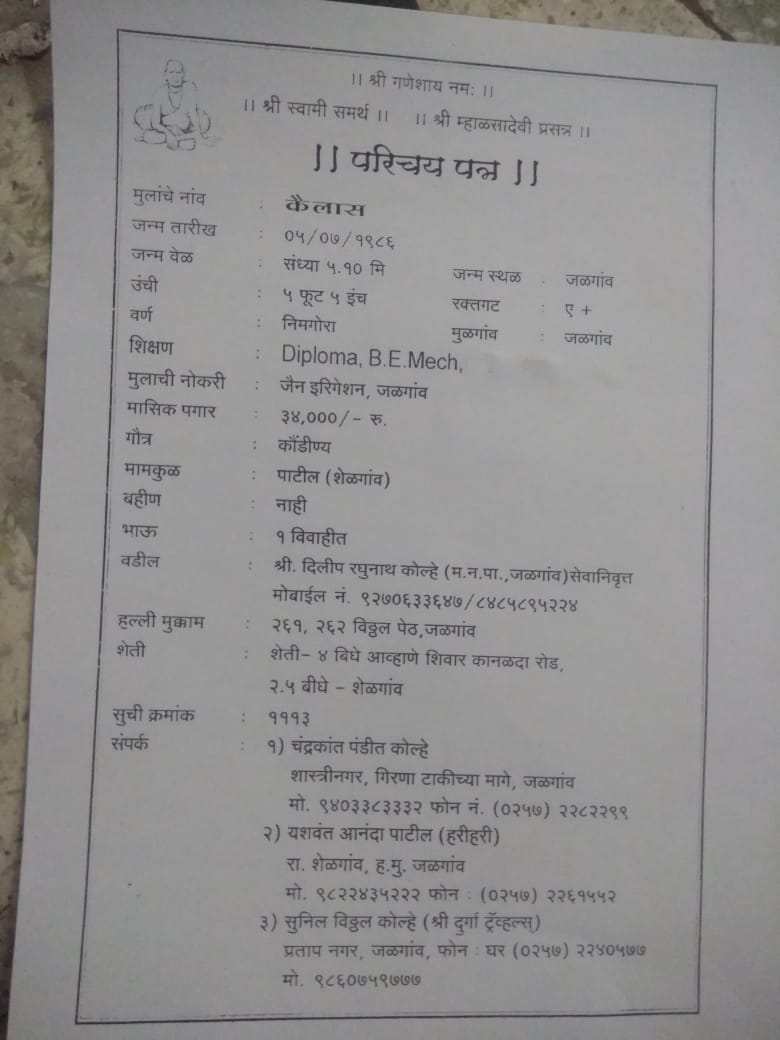 ।। श्री गणेशाय नमः ।।
।। श्री स्वामी समर्थ ।। ।। श्री म्हाळसादेवी प्रसन्न ।।
।। परिचय पत्र ।।
मुलांचे नांव : कैलास
जन्म तारीख : ०५/०७/१९८६
जन्म वेळ : संध्या ५.१० मि जन्म स्थळ : जळगांव
उंची : ५ फूट ५ इंच रक्तगट : ए +
वर्ण : निमगोरा मुळगांव : जळगांव
शिक्षण : Diploma, B.E.Mech,
मुलाची नोकरी : जैन इरिगेशन, जळगांव
मासिक पगार : ३४,०००/- रु.
गौत्र : कौंडीण्य
मामकुळ : पाटील (शेळगांव)
बहीण : नाही
भाऊ : १ विवाहीत
वडील : श्री. दिलीप रघुनाथ कोल्हे (म.न.पा.,जळगांव)सेवानिवृत्त
मोबाईल नं. ९२७०६३३६४७/८४८५८९५२२४
हल्ली मुक्काम : २६१, २६२ विठ्ठल पेठ,जळगांव
शेती : शेती- ४ बिघे आव्हाणे शिवार कानळदा रोड,
२.५ बीघे - शेळगांव
सुची क्रमांक : १११३
संपर्क : १) चंद्रकांत पंडीत कोल्हे
शास्त्रीनगर, गिरणा टाकीच्या मागे, जळगांव
मो. ९४०३३८३३३२ फोन नं. (०२५७) २२८२२९९
२) यशवंत आनंदा पाटील (हरीहरी)
रा. शेळगांव, ह.मु. जळगांव
मो. ९८२२४३५२२२ फोन : (०२५७) २२६१५५२
३) सुनिल विठ्ठल कोल्हे (श्री दुर्गा ट्रॅव्हल्स्)
प्रताप नगर, जळगांव, फोन : घर (०२५७) २२४०५७७
मो. ९८६०७५९७७७